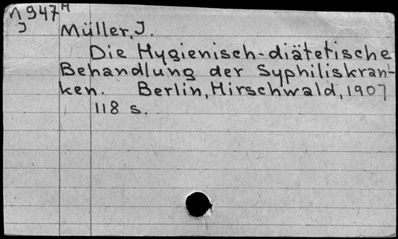 1947H
J
Müller, J.
Die Hygienisch-diätetische
Behandlung der Syphiliskran-
ken. Berlin, Hirschwald, 1907
118 s.